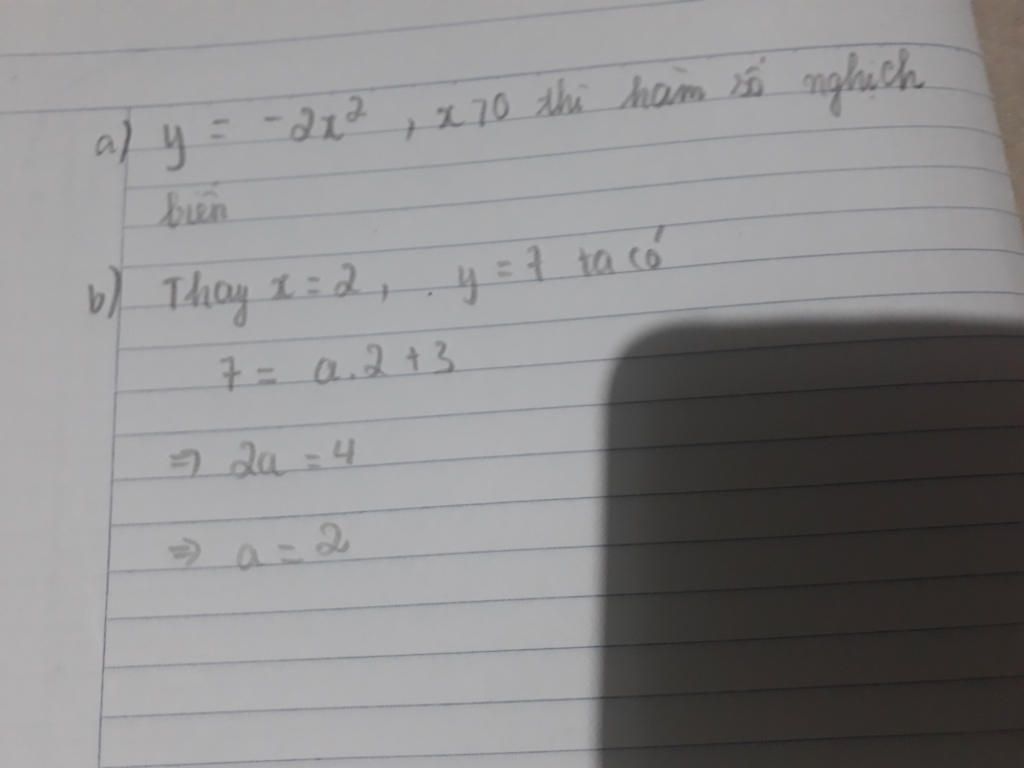 a) y = -2x², x>0 thì hàm số nghịch
biến
b) Thay x = 2, . y = 7 ta có
7 = a.2+3
⇒ 2a = 4
⇒ a = 2